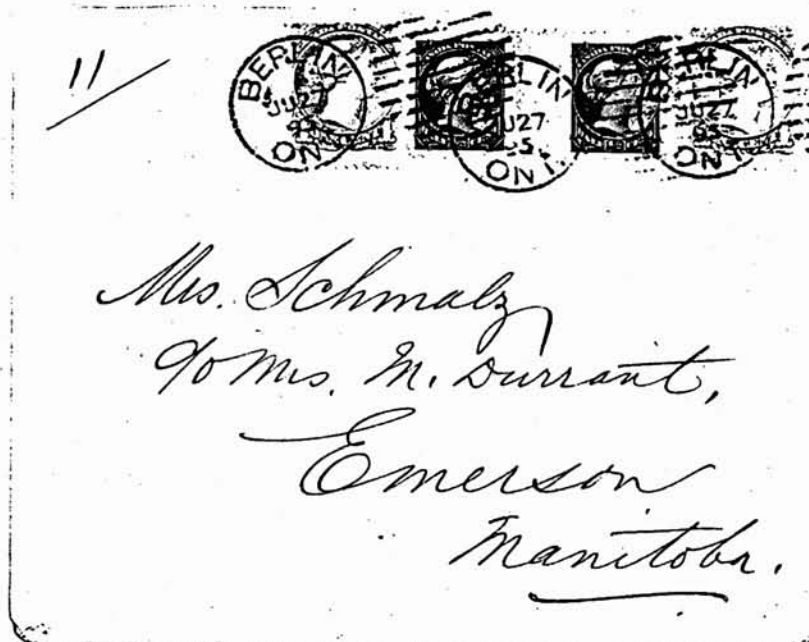 11
BERLIN
JU 27
95
ONT.
BERLIN
JU 27
95
ONT.
BERLIN
JU 27
95
ONT.
Mrs. Schmalz,
c/o Mrs. M. Durrant,
Emerson
Manitoba.